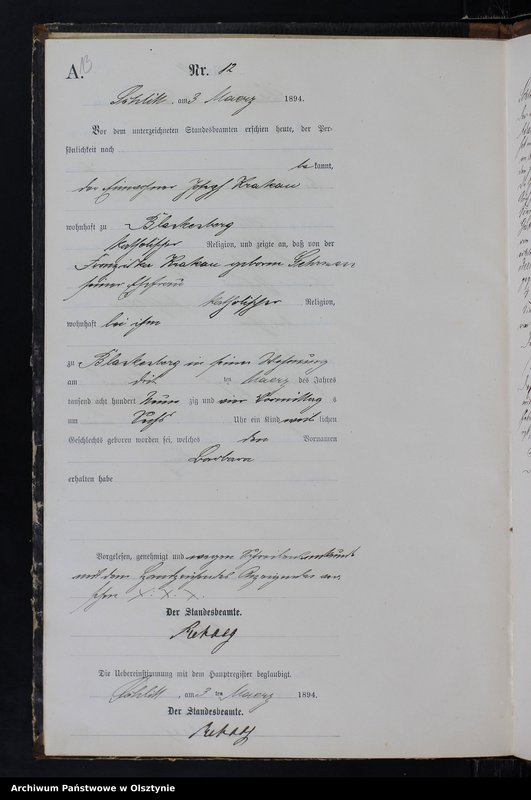 A. 13
Nr. 12
Schlitt, am 3 Maerz 1894.
Vor dem unterzeichneten Standesbeamten erschien heute, der Per-
sönlichkeit nach
bekannt,
der Einwohner Joseph Krakau
wohnhaft zu Blankenberg
katholischer Religion, und zeigte an, daß von der
Franziska Krakau geborene
seiner Ehefrau
katholischer Religion,
wohnhaft bei ihm
zu Blankenberg in seiner Wohnung
am ten Maerz des Jahres
tausend acht hundert Neun zig und vier Vormittag s
um Sechs Uhr ein Kind weib lichen
Geschlechts geboren worden sei, welches den Vornamen
Barbara
erhalten habe
Vorgelesen, genehmigt und wegen Schreibensunkunde
mit dem Handzeichen des Anzeigenden ver
sehen X. X. X.
Der Standesbeamte.
Die Uebereinstimmung mit dem Hauptregister beglaubigt.
Schlitt, am 3 ten Maerz 1894.
Der Standesbeamte.
Archiwum Państwowe w Olsztynie